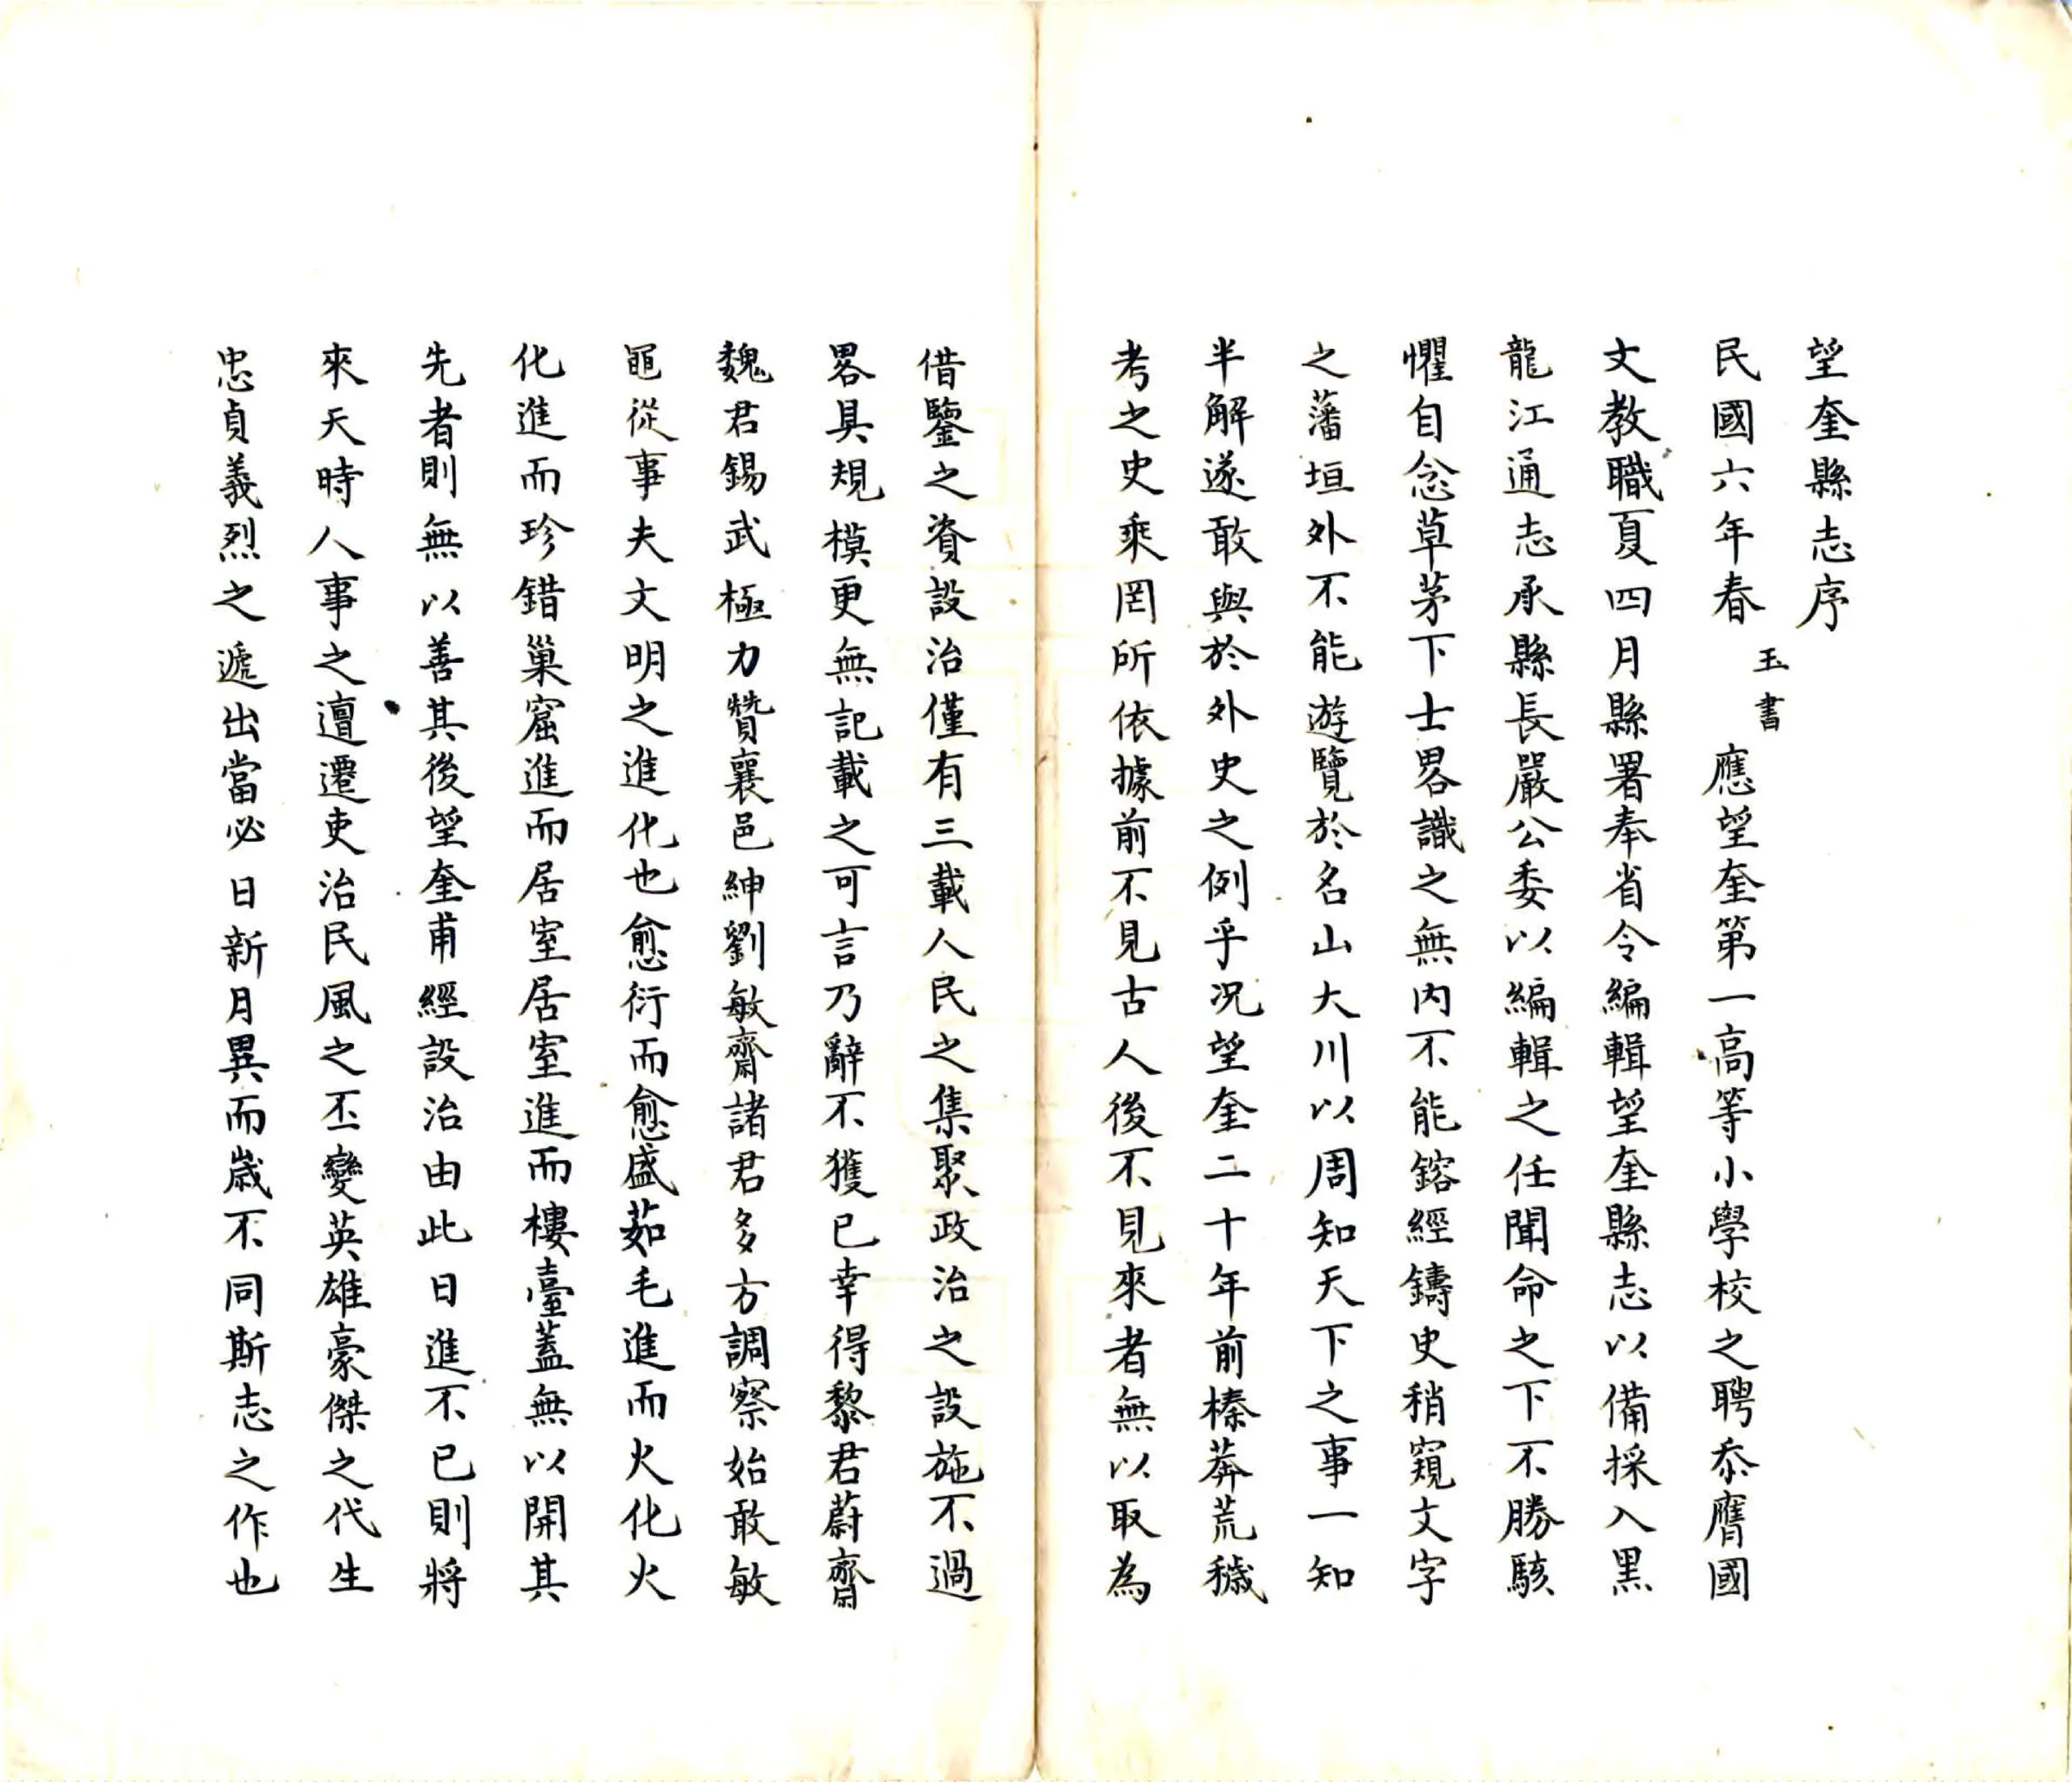 望奎縣志序
民國六年春玉書應望奎第一高等小學校之聘忝膺國
文教職夏四月縣署奉省令編輯望奎縣志以備採入黑
龍江通志承縣長嚴公委以編輯之任聞命之下不勝駭
懼自念草茅下士畧識之無內不能鎔經鑄史稍窺文字
之藩垣外不能遊覽於名山大川以周知天下之事一知
半解遂敢與於外史之例乎况望奎二十年前榛莽荒穢
考之史乘罔所依據前不見古人後不見來者無以取為
借鑒之資設治僅有三載人民之集聚政治之設施不過
畧具規模更無記載之可言乃辭不獲已幸得黎君蔚齋
魏君錫武極力贊襄邑紳劉敏齋諸君多方調察始敢敏
黽從事夫文明之進化也愈衍而愈盛茹毛進而火化火
化進而珍錯巢窟進而居室居室進而樓臺蓋無以開其
先者則無以善其後望奎甫經設治由此日進不已則將
來天時人事之邅遷吏治民風之丕變英雄豪傑之代生
忠貞義烈之遞出當必日新月異而歲不同斯志之作也